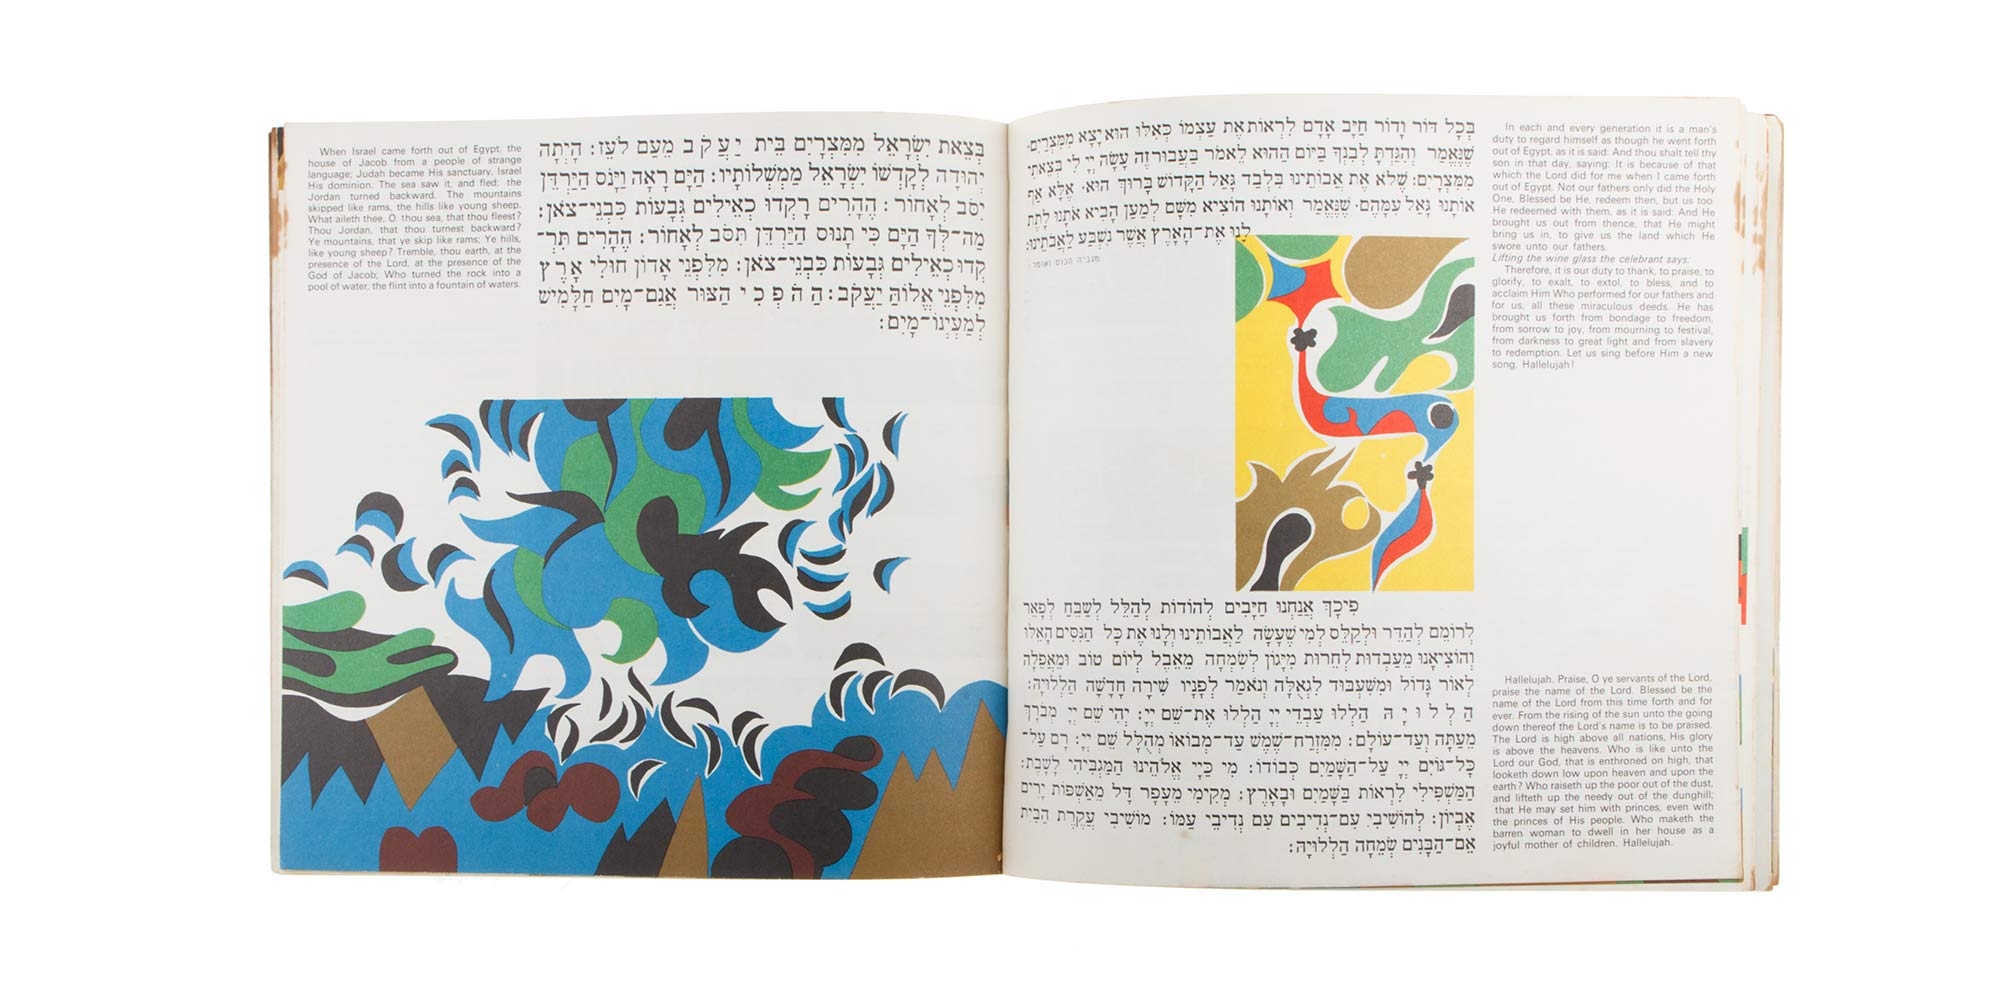 בְּכָל דּוֹר וָדוֹר חַיָּב אָדָם לִרְאוֹת אֶת עַצְמוֹ כְּאִלּוּ הוּא יָצָא מִמִּצְרַיִם.
שֶׁנֶּאֱמַר וְהִגַּדְתָּ לְבִנְךָ בַּיּוֹם הַהוּא לֵאמֹר בַּעֲבוּר זֶה עָשָׂה יְיָ לִי בְּצֵאתִי
מִמִּצְרָיִם: שֶׁלֹּא אֶת אֲבוֹתֵינוּ בִּלְבַד גָּאַל הַקָּדוֹשׁ בָּרוּךְ הוּא. אֶלָּא אַף
אוֹתָנוּ גָּאַל עִמָּהֶם. שֶׁנֶּאֱמַר וְאוֹתָנוּ הוֹצִיא מִשָּׁם לְמַעַן הָבִיא אֹתָנוּ לָתֶת
לָנוּ אֶת־הָאָרֶץ אֲשֶׁר נִשְׁבַּע לַאֲבֹתֵינוּ:
מגביה הכוס ואומר
פִיכָךְ אֲנַחְנוּ חַיָּבִים לְהוֹדוֹת לְהַלֵּל לְשַׁבֵּחַ לְפָאֵר
לְרוֹמֵם לְהַדֵּר וּלְקַלֵּס לְמִי שֶׁעָשָׂה לַאֲבוֹתֵינוּ וְלָנוּ אֶת כָּל הַנִּסִּים הָאֵלּוּ
וְהוֹצִיאָנוּ מֵעַבְדוּת לְחֵרוּת מִיָּגוֹן לְשִׂמְחָה מֵאֵבֶל לְיוֹם טוֹב וּמֵאֲפֵלָה
לְאוֹר גָּדוֹל וּמִשִּׁעְבּוּד לִגְאֻלָּה וְנֹאמַר לְפָנָיו שִׁירָה חֲדָשָׁה הַלְלוּיָהּ:
הַלְלוּיָהּ הַלְלוּ עַבְדֵי יְיָ הַלְלוּ אֶת־שֵׁם יְיָ: יְהִי שֵׁם יְיָ מְבֹרָךְ
מֵעַתָּה וְעַד־עוֹלָם: מִמִּזְרַח־שֶׁמֶשׁ עַד־מְבוֹאוֹ מְהֻלָּל שֵׁם יְיָ: רָם עַל־
כָּל־גּוֹיִם יְיָ עַל־הַשָּׁמַיִם כְּבוֹדוֹ: מִי כַּיְיָ אֱלֹהֵינוּ הַמַּגְבִּיהִי לָשָׁבֶת:
הַמַּשְׁפִּילִי לִרְאוֹת בַּשָּׁמַיִם וּבָאָרֶץ: מְקִימִי מֵעָפָר דָּל מֵאַשְׁפּוֹת יָרִים
אֶבְיוֹן: לְהוֹשִׁיבִי עִם־נְדִיבִים עִם נְדִיבֵי עַמּוֹ: מוֹשִׁיבִי עֲקֶרֶת הַבַּיִת
אֵם־הַבָּנִים שְׂמֵחָה הַלְלוּיָהּ:
In each and every generation it is a man's
duty to regard himself as though he went forth
out of Egypt, as it is said: And thou shalt tell thy
son in that day, saying: It is because of that
which the Lord did for me when I came forth
out of Egypt. Not our fathers only did the Holy
One, Blessed be He, redeem then, but us too
He redeemed with them, as it is said: And He
brought us out from thence, that He might
bring us in, to give us the land which He
swore unto our fathers.
Lifting the wine glass the celebrant says:
Therefore, it is our duty to thank, to praise, to
glorify, to exalt, to extol, to bless, and to
acclaim Him Who performed for our fathers and
for us, all these miraculous deeds. He has
brought us forth from bondage to freedom,
from sorrow to joy, from mourning to festival,
from darkness to great light and from slavery
to redemption. Let us sing before Him a new
song, Hallelujah!
Hallelujah. Praise, O ye servants of the Lord,
praise the name of the Lord. Blessed be the
name of the Lord from this time forth and for
ever. From the rising of the sun unto the going
down thereof the Lord's name is to be praised.
The Lord is high above all nations, His glory
is above the heavens. Who is like unto the
Lord our God, that is enthroned on high, that
looketh down low upon heaven and upon the
earth? Who raiseth up the poor out of the dust,
and lifteth up the needy out of the dunghill;
that He may set him with princes, even with
the princes of His people. Who maketh the
barren woman to dwell in her house as a
joyful mother of children. Hallelujah.
בְּצֵאת יִשְׂרָאֵל מִמִּצְרָיִם בֵּית יַעֲקֹב מֵעַם לֹעֵז: הָיְתָה
יְהוּדָה לְקָדְשׁוֹ יִשְׂרָאֵל מַמְשְׁלוֹתָיו: הַיָּם רָאָה וַיָּנֹס הַיַּרְדֵּן
יִסֹּב לְאָחוֹר: הֶהָרִים רָקְדוּ כְאֵילִים גְּבָעוֹת כִּבְנֵי־צֹאן:
מַה־לְּךָ הַיָּם כִּי תָנוּס הַיַּרְדֵּן תִּסֹּב לְאָחוֹר: הֶהָרִים תִּרְ־
קְדוּ כְאֵילִים גְּבָעוֹת כִּבְנֵי־צֹאן: מִלִּפְנֵי אָדוֹן חוּלִי אָרֶץ
מִלִּפְנֵי אֱלוֹהַּ יַעֲקֹב: הַהֹפְכִי הַצּוּר אֲגַם־מָיִם חַלָּמִישׁ
לְמַעְיְנוֹ־מָיִם:
When Israel came forth out of Egypt, the
house of Jacob from a people of strange
language; Judah became His sanctuary, Israel
His dominion. The sea saw it, and fled; the
Jordan turned backward. The mountains
skipped like rams, the hills like young sheep.
What aileth thee, O thou sea, that thou fleest?
Thou Jordan, that thou turnest backward?
Ye mountains, that ye skip like rams; Ye hills,
like young sheep? Tremble, thou earth, at the
presence of the Lord, at the presence of the
God of Jacob; Who turned the rock into a
pool of water, the flint into a fountain of waters.